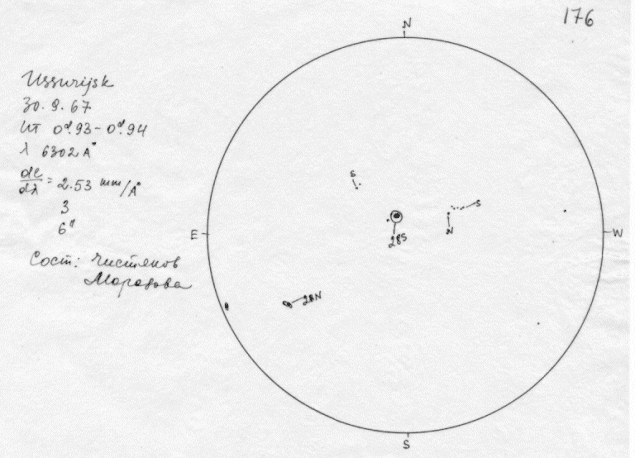 176
N
Ussurijsk
30.9.67
UT 0ᵈ.93-0ᵈ.94
λ 6302 A°
dl/dλ = 2.53 mm/A°
3
6"
Сост: Чистяков
Морозова
S
S
N
28S
E
W
28N
S